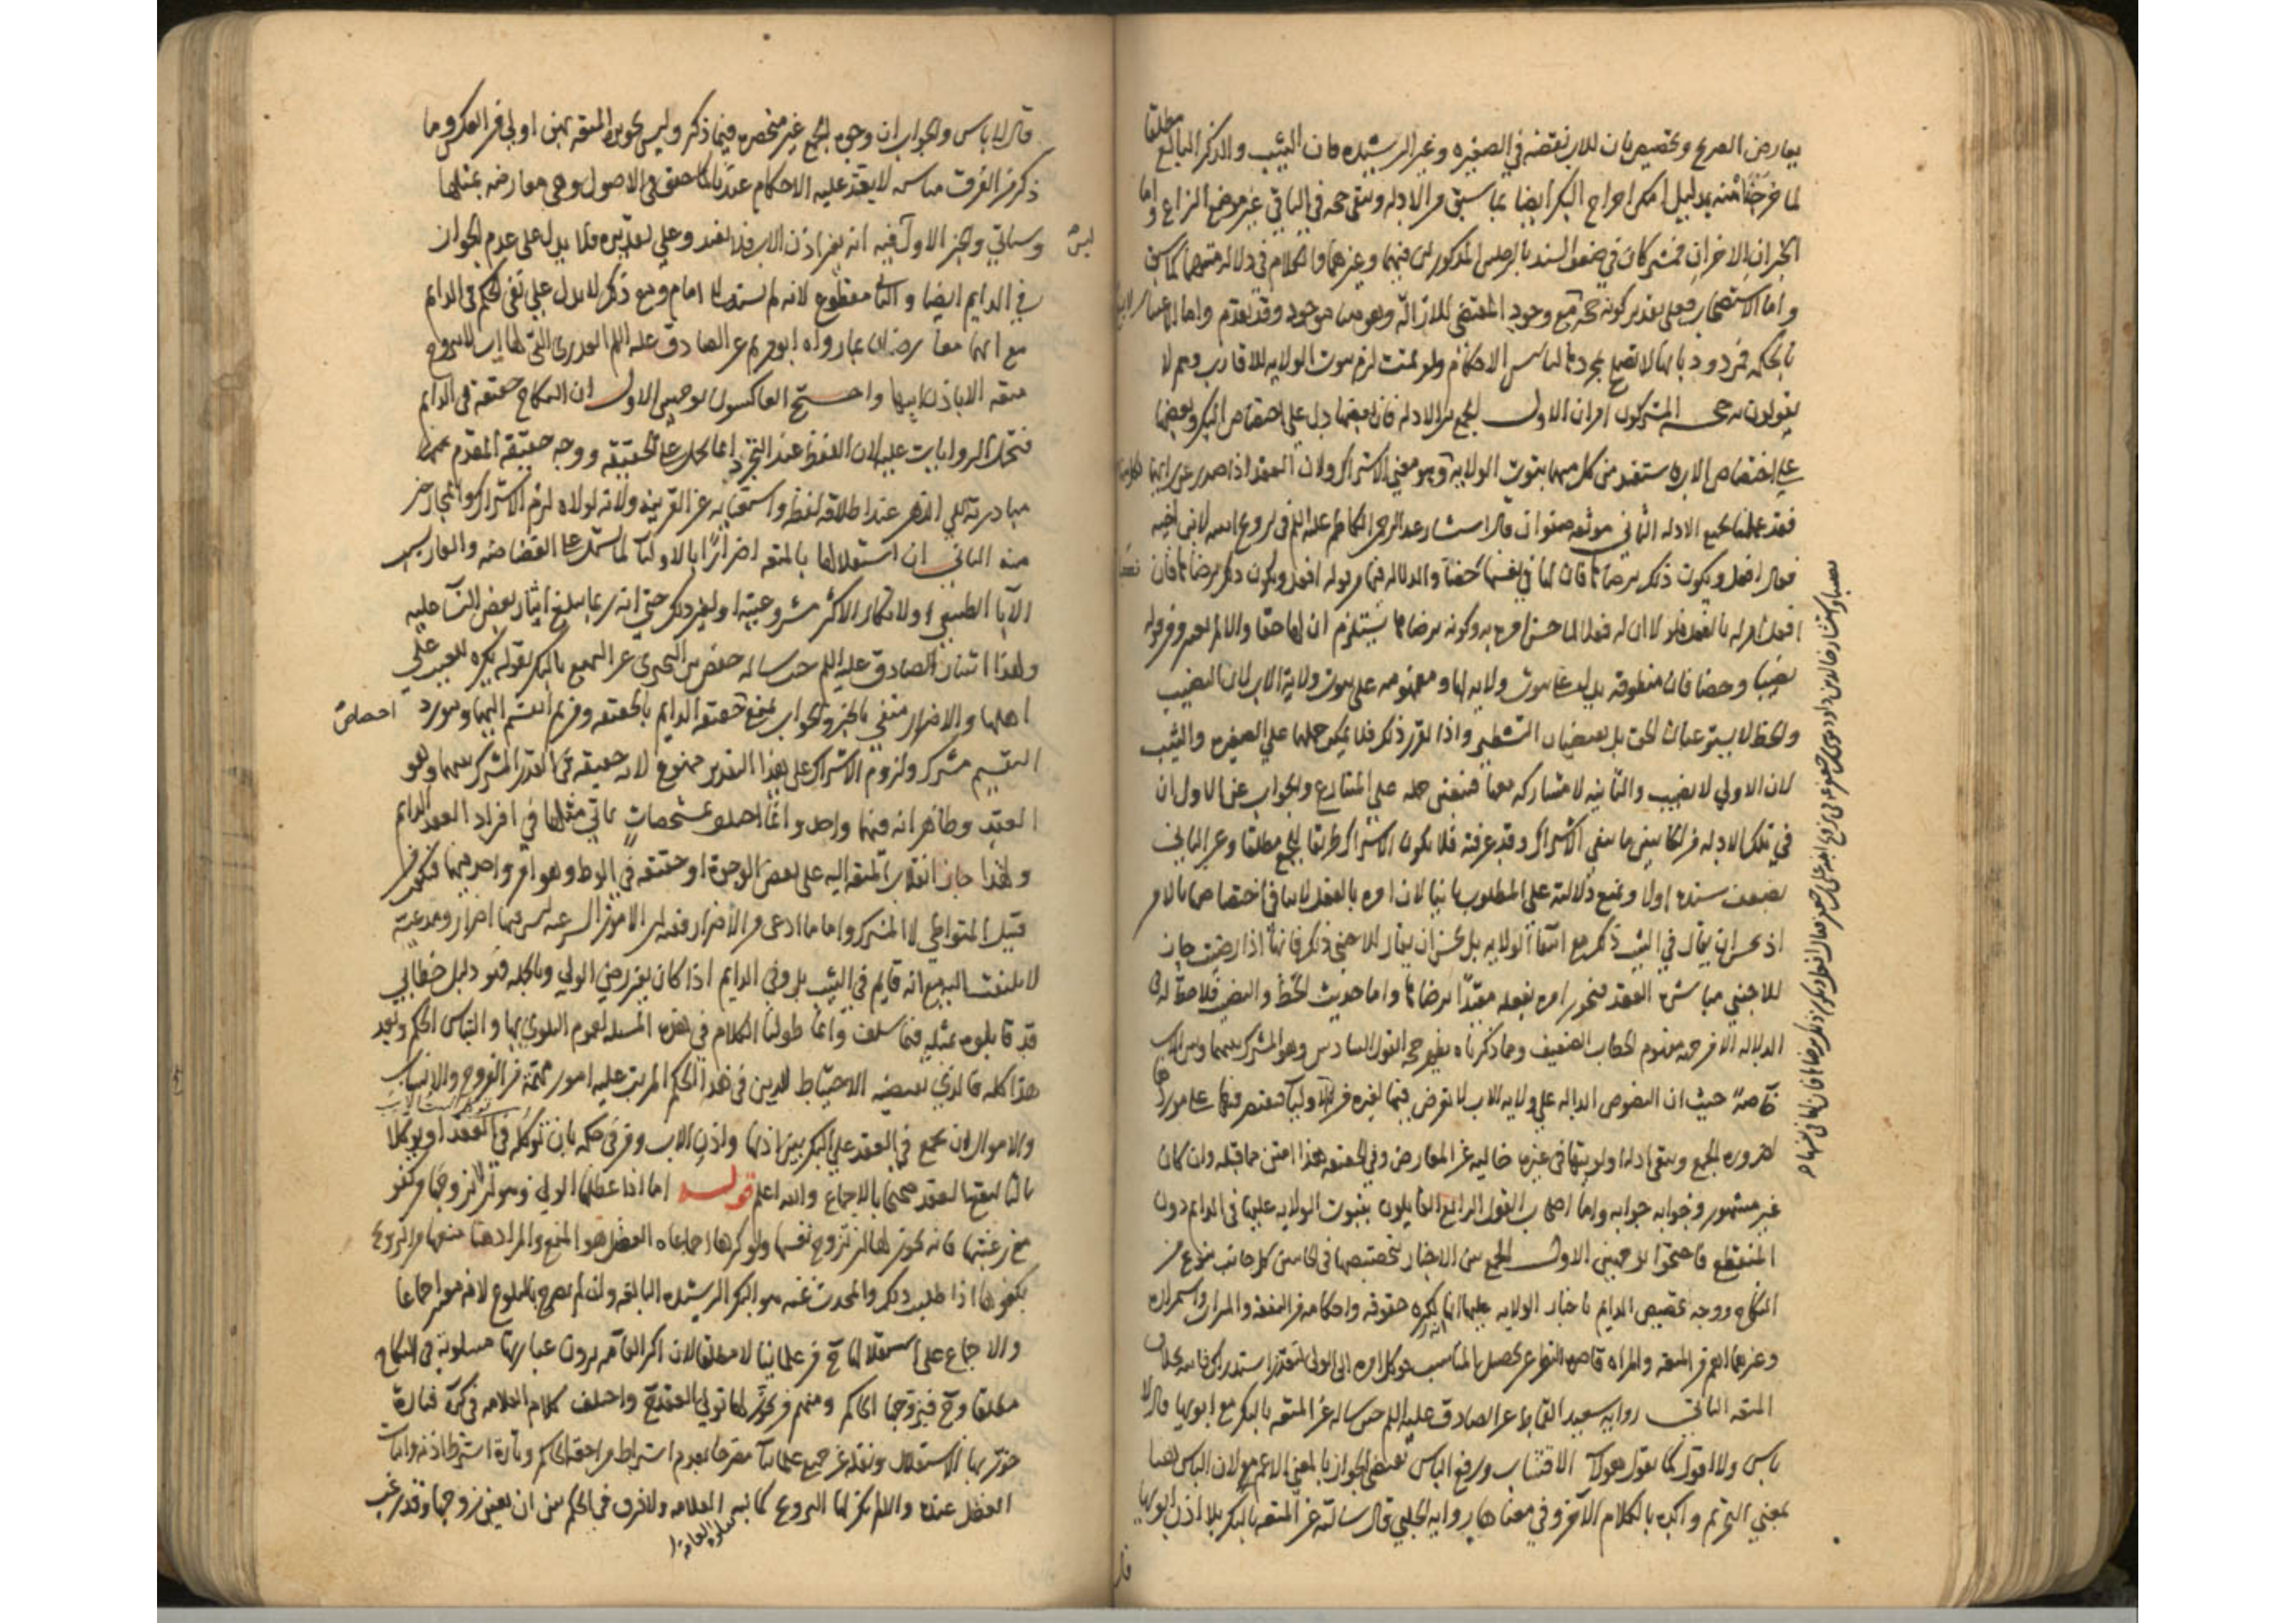 يعارض الصريح وتخصيص بان للاب نقضه في الصغيره وغير الرشيده فان الثيب والذكر البالغ مطلقا
لما خرجا منه بدليل امكن اخراج البكر ايضا بما سبق من الادله ويبقى حجه في الباقي غير موضع النزاع واما
الخبران الاخران فمشتركان في ضعف السند بالرجلين المذكورين فيهما وغيرهما والكلام في دلالة متنهما كما سبق
واما الاستصحاب فعلى تقدير كونه حجة مع وجود المقتضي للازالة وهو هنا موجود وقد تقدم واما الاعتبار
بالحكمه فمردود بانها لا تصلح بمجردها لتاسيس الاحكام ولو تمت لزم ثبوت الولايه للاقارب وهم لا
يقولون به حجة المشركون امران الاول الجمع بين الادله فان بعضها دل على اختصاص البكر وبعضها
على اختصاص الاب فيستفيد من كل منهما ثبوت الولايه وهو معنى الاشتراك ولان العقد اذا صدر عن رايهما
فقد عملنا بجميع الادله الثاني موثقه صفوان قال استشار عبد الرحمن الكاظم عليه السلم في تزويج ابنته لابن اخيه
فقال افعل ويكون ذلك برضاها فان لها في نفسها حظا والدلاله فيها من قوله افعل ويكون ذلك برضاها فان
افعل امر له بالفعل فلولا ان له فعلا لما حسن امره به وكونه برضاها يستلزم ان لها حقا والا لم يعتبر وقوله
نصيبا وحظا فان منطوقه يدل على ثبوت ولايه لها ومفهومه على ثبوت ولاية الاب لان النصيب
والحظ لا يستوعبان الحق بل يقتضيان التشطير واذا تقرر ذلك فلا يمكن حملها على الصغيره والثيب
لان الاولى لا نصيب والثانيه لا مشاركه معها فتعين حمله على المتنازع والجواب عن الاول ان
في تلك الادله من الجانبين ما ينفي الاشتراك وقد عرفته فلا يكون الاشتراك طريقا للجمع مطلقا وعن الثاني
بضعف سنده اولا ونمنع دلالته على المطلوب ثانيا لان امره بالفعل لا ينافي اختصاصها بالامر
اذ يحسن ان يقال في الثيب ذلك مع انتفا الولايه بل يحسن ان يقال للاجنبي ذلك فانها اذا رضيت جاز
للاجنبي مباشرة العقد فيجوز امره بفعله مقيدا برضاها واما حديث الحظ والنصيب فلا حجة له في
الدلاله الا من جهة مفهوم الخطاب الضعيف ومما ذكرناه يظهر حجه القول السادس وهو المشترك بينهما وبين الاب
خاصة حيث ان النصوص الداله على ولايه الاب لا تعرض فيها لغيره من الاوليا فيقتصر فيها على موردها
لضروره الجمع ويبقى ادلة اولويتها في غيره خاليه عن المعارض وفي الحقيقه هذا امتن مما قبله وان كان
غير مشهور وجوابه جوابه واما اصحاب القول الرابع القايلون بثبوت الولايه عليها في الدايم دون
المنقطع فاحتجوا بوجهين الاول الجمع بين الاخبار بتخصيصها في الجانبين كل جانب بنوع من
النكاح ووجه تخصيص الدايم باخبار الولايه عليها انه لكثره حقوقه واحكامه من النفقه والميراث واستمراره
وغيرها اهم من المتعه والمراه قاصرة النظر عن تحصيل المناسب فوكل امره الى الولي لتعذر استدراك فايته بخلاف
المتعه الثاني رواية سعيد القماط عن الصادق عليه السلم حين ساله عن المتعه بالبكر مع ابويها قال لا
باس ولا اقول كما يقول هولاء الاقشاب ورفع الباس يقتضي الجواز بالمعنى الاعم مع لان الباس هنا
بمعنى التحريم واكده بالكلام الاخر وفي معناها رواية الحلبي قال سالته عن المتعه بالبكر بلا اذن ابويها
قال
قال لا باس والجواب ان وجوه الجمع غير منحصره فيما ذكر وليس تجويزه المتعه بهن اولى من العكس وما
ذكر من الفرق مناسبه لا يعتد عليه الاحكام عندنا كما حقق في الاصول وهي معارضه بمثلها
وسياتي والخبر الاول فيه انه بغير اذن الاب فلا يفيد وعلى تقديره فلا يدل على عدم الجواز
ليس
في الدايم ايضا والثاني مقطوع لانه لم يستند الى امام ومع ذلك لا يدل على نفي الحكم في الدايم
مع انهما معارضان بما رواه ابو مريم عن الصادق عليه السلم العذراء التي لها اب لا تزوج
متعه الا باذن ابيها واحتج العاكسون بوجهين الاول ان النكاح حقيقه في الدايم
فتحمل الروايات عليه لان اللفظ عند التجرد انما يحمل على الحقيقه ووجه حقيقه المقدم منهما
مبادرته الى الذهن عند اطلاقه لفظه واستغنايه عن القرينه ولانه لولاه لزم الاشتراك والمجاز خير
منه الثاني ان استقلالها بالمتعه اضرارا بالاوليا لما يشتمل على الغضاضه والعار بسبب
الاباء الطبيعي ولانكار الاكثر مشروعيته او لغير ذلك حتى انه ربما بلغ ايثار بعض الناس عليه
ولهذا اشار الصادق عليه السلم حين ساله حفص بن البختري عن التمتع بالبكر بقوله يكره للعيب على
اهلها والاضرار منفي بالخبر والجواب بمنع حقيقه الدايم بالحقيقه ومن ثم انقسم اليهما ومورد
اختصاص
التقسيم مشترك ولزوم الاشتراك على هذا التقدير ممنوع لانه حقيقه في القدر المشترك بينهما وهو
العقد وظاهر انه فيهما واحد وانما اختلف بمشخصات ياتي مثلها في افراد العقد الدايم
ولهذا جاز انقلاب المتعه اليه على بعض الوجوه او حقيقته في الوطء وهو امر واحد فيهما فيكون من
قبيل المتواطي لا المشترك واما ما ادعى من الاضرار فمنه ان الامور الشرعيه ليس فيها اضرار ومدعيه
لا يلتفت اليه مع انه قايم في الثيب بل وفي الدايم اذا كان بغير رضي الولي وبالجمله فهو دليل خطابي
قد قابلوه بمثله فيما سلف وانما طولنا الكلام في هذه المسئله لعموم البلوى بها والتباس الحكم وبعد
هذا كله فالذي يقتضيه الاحتياط للدين في هذا الحكم المترتب عليه امور مهمة من الفروج والانساب
والاموال ان يجمع في العقد على البكر بين اذنها واذن الاب ومن في حكمه بان توكله في العقد او يوكلا
ثالثا ليقع العقد صحيحا بالاجماع والله اعلم قوله اما اذا عضلها الولي وهو ان لا يزوجها من كفو
مع رغبتها فانه يجوز لها ان تزوج نفسها ولو كرها اجماعا العضل هو المنع والمراد هنا منعها من التزويج
بكفوها اذا طلبت ذلك والمحدث عنه هو البكر الرشيده البالغه وان لم يصرح بالبلوغ لانه معتبر اجماعا
والاجماع على استقلالها ح من علمائنا لا مطلقا لان اكثر العامه يرون عبارتها مسلوبة في النكاح
مطلقا وح فيزوجها الحاكم ومنهم من يجوز لها تولي العقد ح واختلف كلام العلامه في كره فتارة
جوز لها الاستقلال ونقله عن جميع علمائنا مصرحا بعدم اشتراط مراجعه الحاكم وتارة اشترط اذنه واثبات
العضل عنده والا لم يكن لها التزويج كما يقوله العامه ولا فرق في الحكم بين ان يعين زوجا وقد رغب